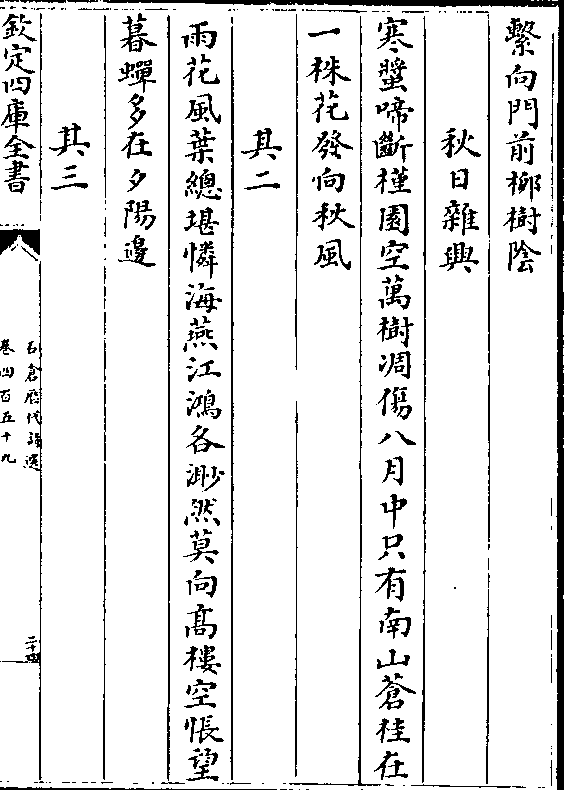 繫向門前栁樹陰
秋日雜興
寒螿啼斷槿園空萬樹凋傷八月中只有南山蒼桂在
一株花發向秋風
其二
雨花風葉總堪憐海燕江鴻各渺然莫向髙樓空悵望
暮蟬多在夕陽邊
其三
欽定四庫全書
石倉歴代詩選
卷四百五十九
二十四